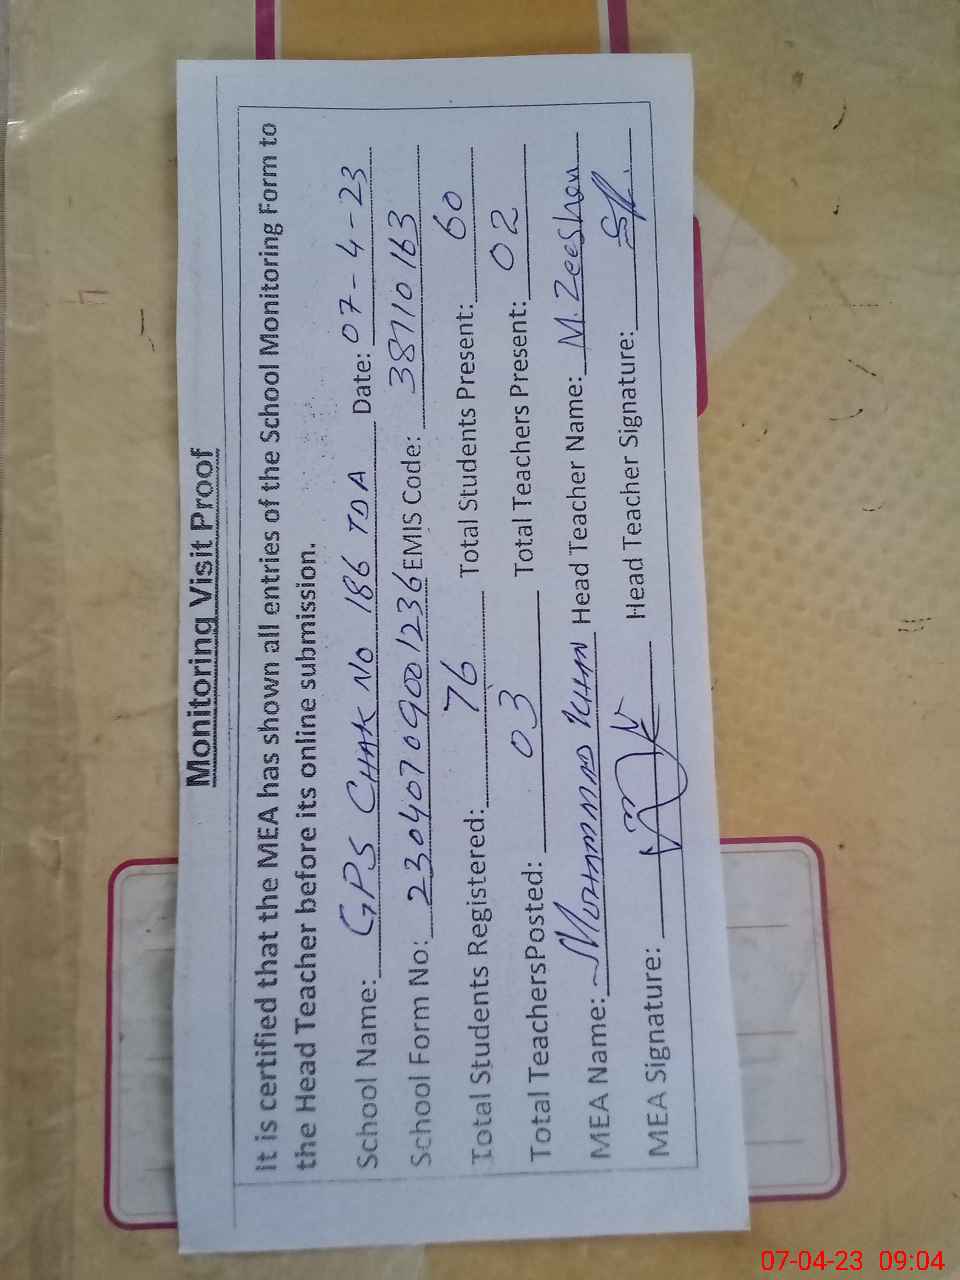 Monitoring Visit Proof
It is certified that the MEA has shown all entries of the School Monitoring Form to
the Head Teacher before its online submission.
School Name: GPS CHAK NO 186 TDA Date: 07-4-23
School Form No: 23040709001236 EMIS Code: 38710163
Total Students Registered: 76 Total Students Present: 60
Total TeachersPosted: 03 Total Teachers Present: 02
MEA Name: MUHAMMAD KHAN Head Teacher Name: M. Zeeshan
MEA Signature: Head Teacher Signature:
07-04-23 09:04